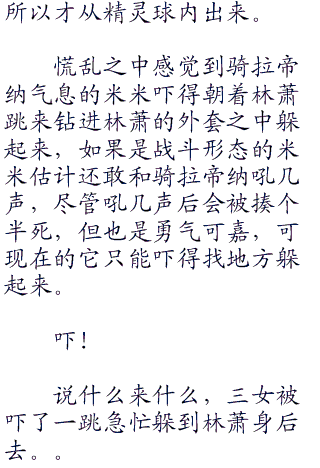 所以才从精灵球内出来。
慌乱之中感觉到骑拉帝
纳气息的米米吓得朝着林萧
跳来钻进林萧的外套之中躲
起来，如果是战斗形态的米
米估计还敢和骑拉帝纳吼几
声，尽管吼几声后会被揍个
半死，但也是勇气可嘉，可
现在的它只能吓得找地方躲
起来。
吓！
说什么来什么，三女被
吓了一跳急忙躲到林萧身后
去。。